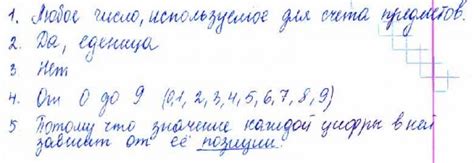 1. Любое число, используемое для счета предметов.
2. Да, еденица
3 Нет
4. От 0 до 9 (0,1, 2, 3, 4, 5, 6, 7, 8, 9)
5 Потому что значение каждой цифры в ней
зависит от её позиции.